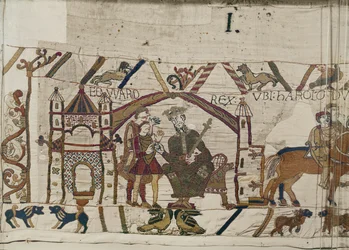 I.
EDWARD REX: VBI: HAROLD DV